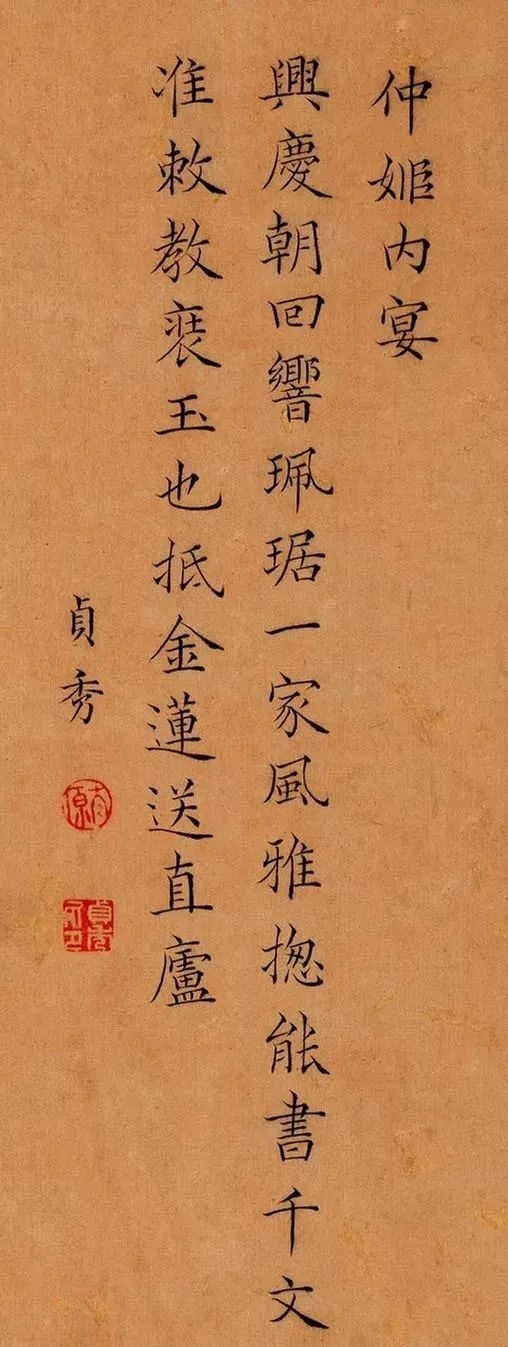 仲姬内宴
興慶朝回響珮琚一家風雅揔能書千文
准敕教裝玉也抵金蓮送直廬
貞秀
貞秀之印